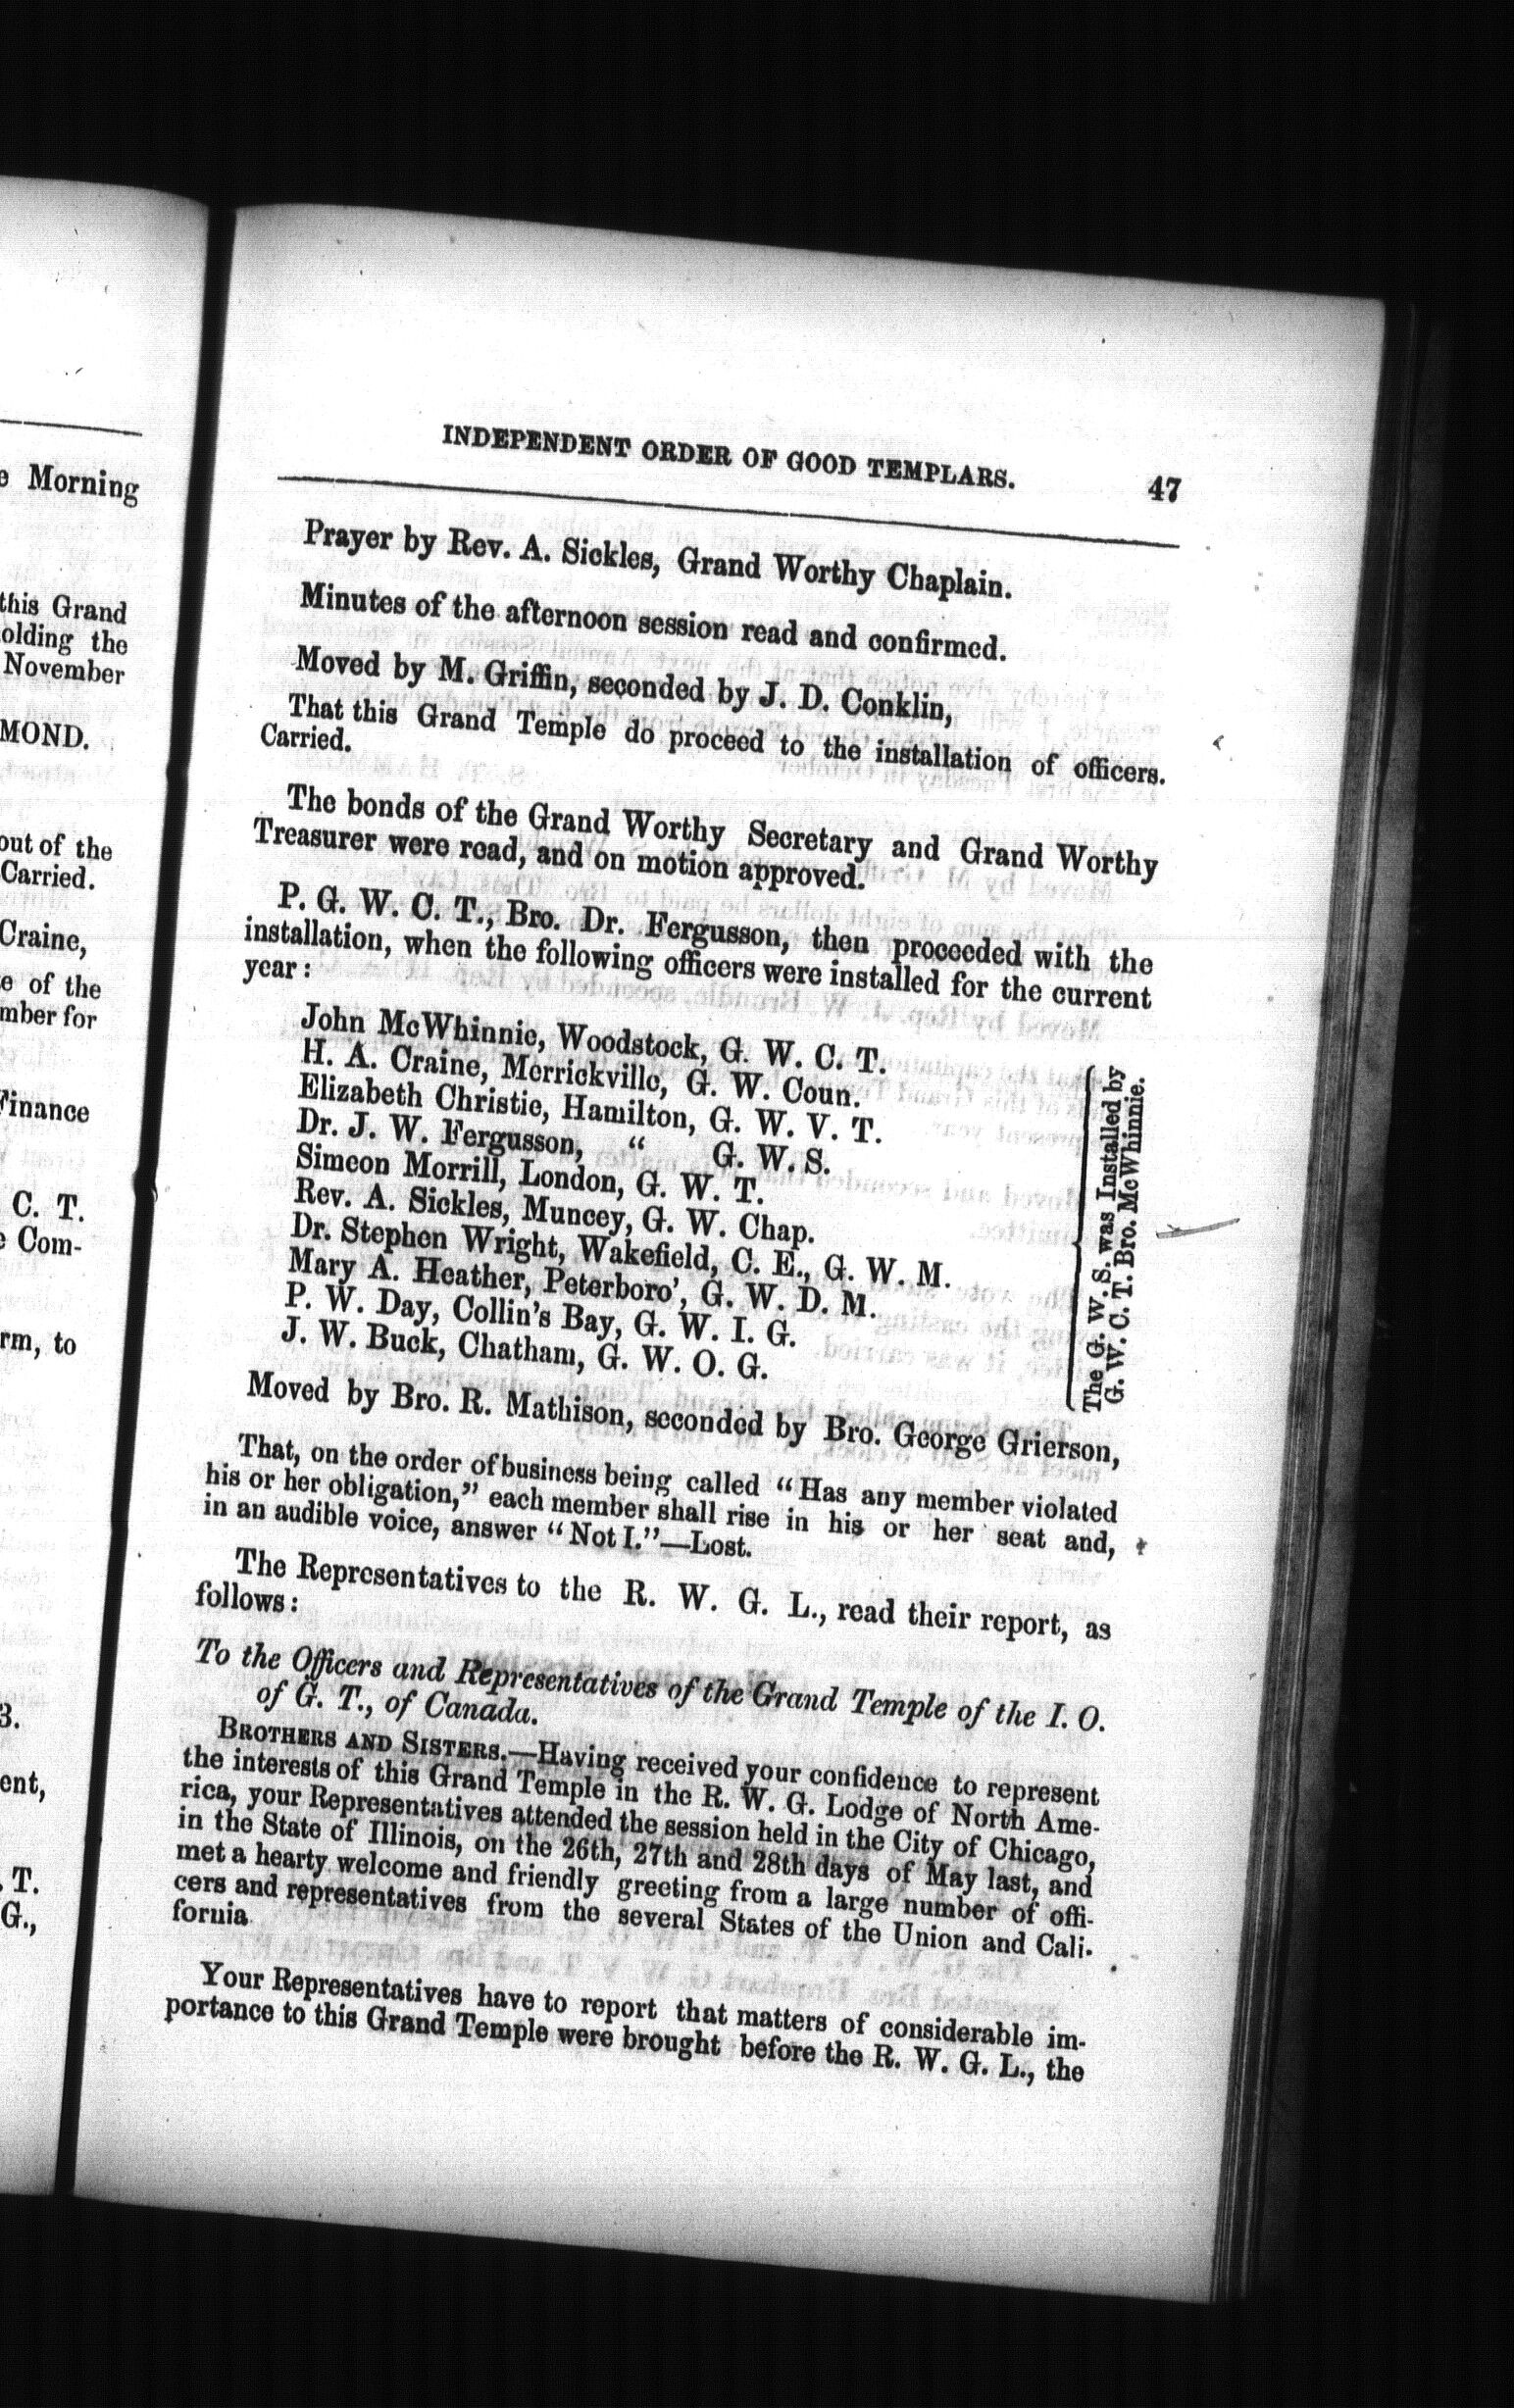 e Morning
this Grand
olding the
November
MOND.
out of the
Carried.
Craine,
e of the
mber for
Finance
C. T.
e Com-
rm, to
3.
ent,
. T.
G.,
INDEPENDENT ORDER OF GOOD TEMPLARS. 47
Prayer by Rev. A. Sickles, Grand Worthy Chaplain.
Minutes of the afternoon session read and confirmed.
Moved by M. Griffin, seconded by J. D. Conklin,
That this Grand Temple do proceed to the installation of officers.
Carried.
The bonds of the Grand Worthy Secretary and Grand Worthy
Treasurer were read, and on motion approved.
P. G. W. C. T., Bro. Dr. Fergusson, then proceeded with the
installation, when the following officers were installed for the current
year:
John McWhinnie, Woodstock, G. W. C. T.
H. A. Craine, Merrickville, G. W. Coun.
Elizabeth Christie, Hamilton, G. W. V. T.
Dr. J. W. Fergusson, " G. W. S.
Simeon Morrill, London, G. W. T.
Rev. A. Sickles, Muncey, G. W. Chap.
Dr. Stephen Wright, Wakefield, C. E., G. W. M.
Mary A. Heather, Peterboro', G. W. D. M.
P. W. Day, Collin's Bay, G. W. I. G.
J. W. Buck, Chatham, G. W. O. G.
The G. W. S. was Installed by
G. W. C. T. Bro. McWhinnie.
Moved by Bro. R. Mathison, seconded by Bro. George Grierson,
That, on the order of business being called "Has any member violated
his or her obligation," each member shall rise in his or her seat and,
in an audible voice, answer "Not I."—Lost.
The Representatives to the R. W. G. L., read their report, as
follows:
To the Officers and Representatives of the Grand Temple of the I. O.
of G. T., of Canada.
BROTHERS AND SISTERS.—Having received your confidence to represent
the interests of this Grand Temple in the R. W. G. Lodge of North Ame-
rica, your Representatives attended the session held in the City of Chicago,
in the State of Illinois, on the 26th, 27th and 28th days of May last, and
met a hearty welcome and friendly greeting from a large number of offi-
cers and representatives from the several States of the Union and Cali-
fornia
Your Representatives have to report that matters of considerable im-
portance to this Grand Temple were brought before the R. W. G. L., the